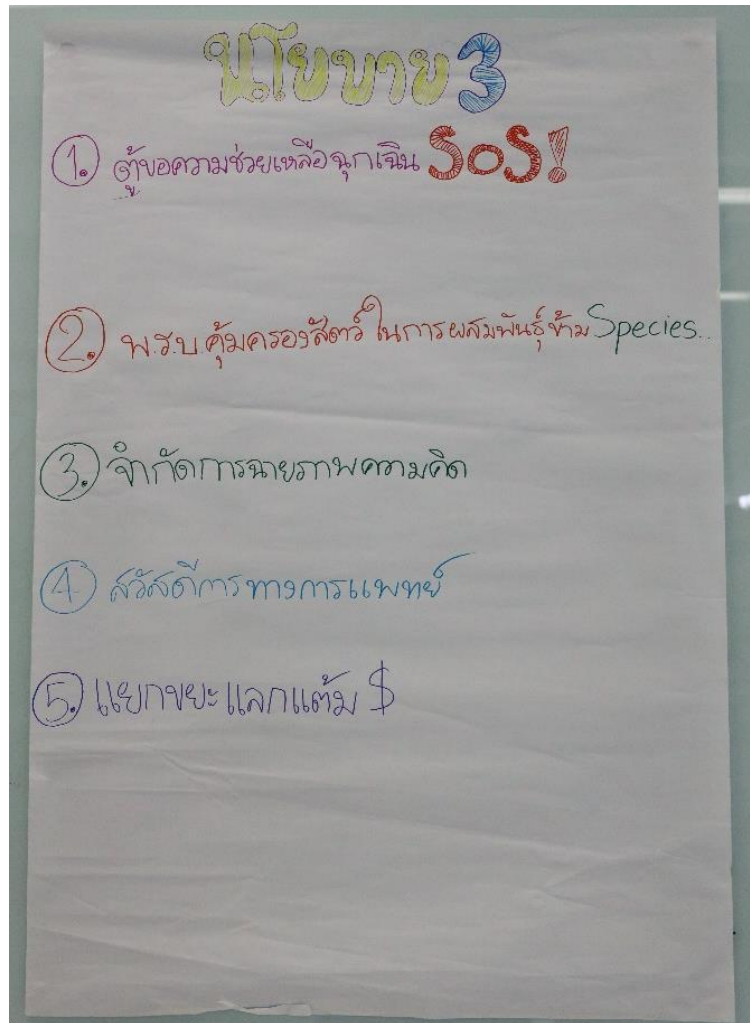 นโยบาย 3
1. ตู้ขอความช่วยเหลือฉุกเฉิน SOS!
2. พ.ร.บ.คุ้มครองสัตว์ ในการผสมพันธุ์ข้าม Species..
3. จำกัดการฉายภาพความคิด
4. สวัสดีการทางการแพทย์
5. แยกขยะแลกแต้ม $